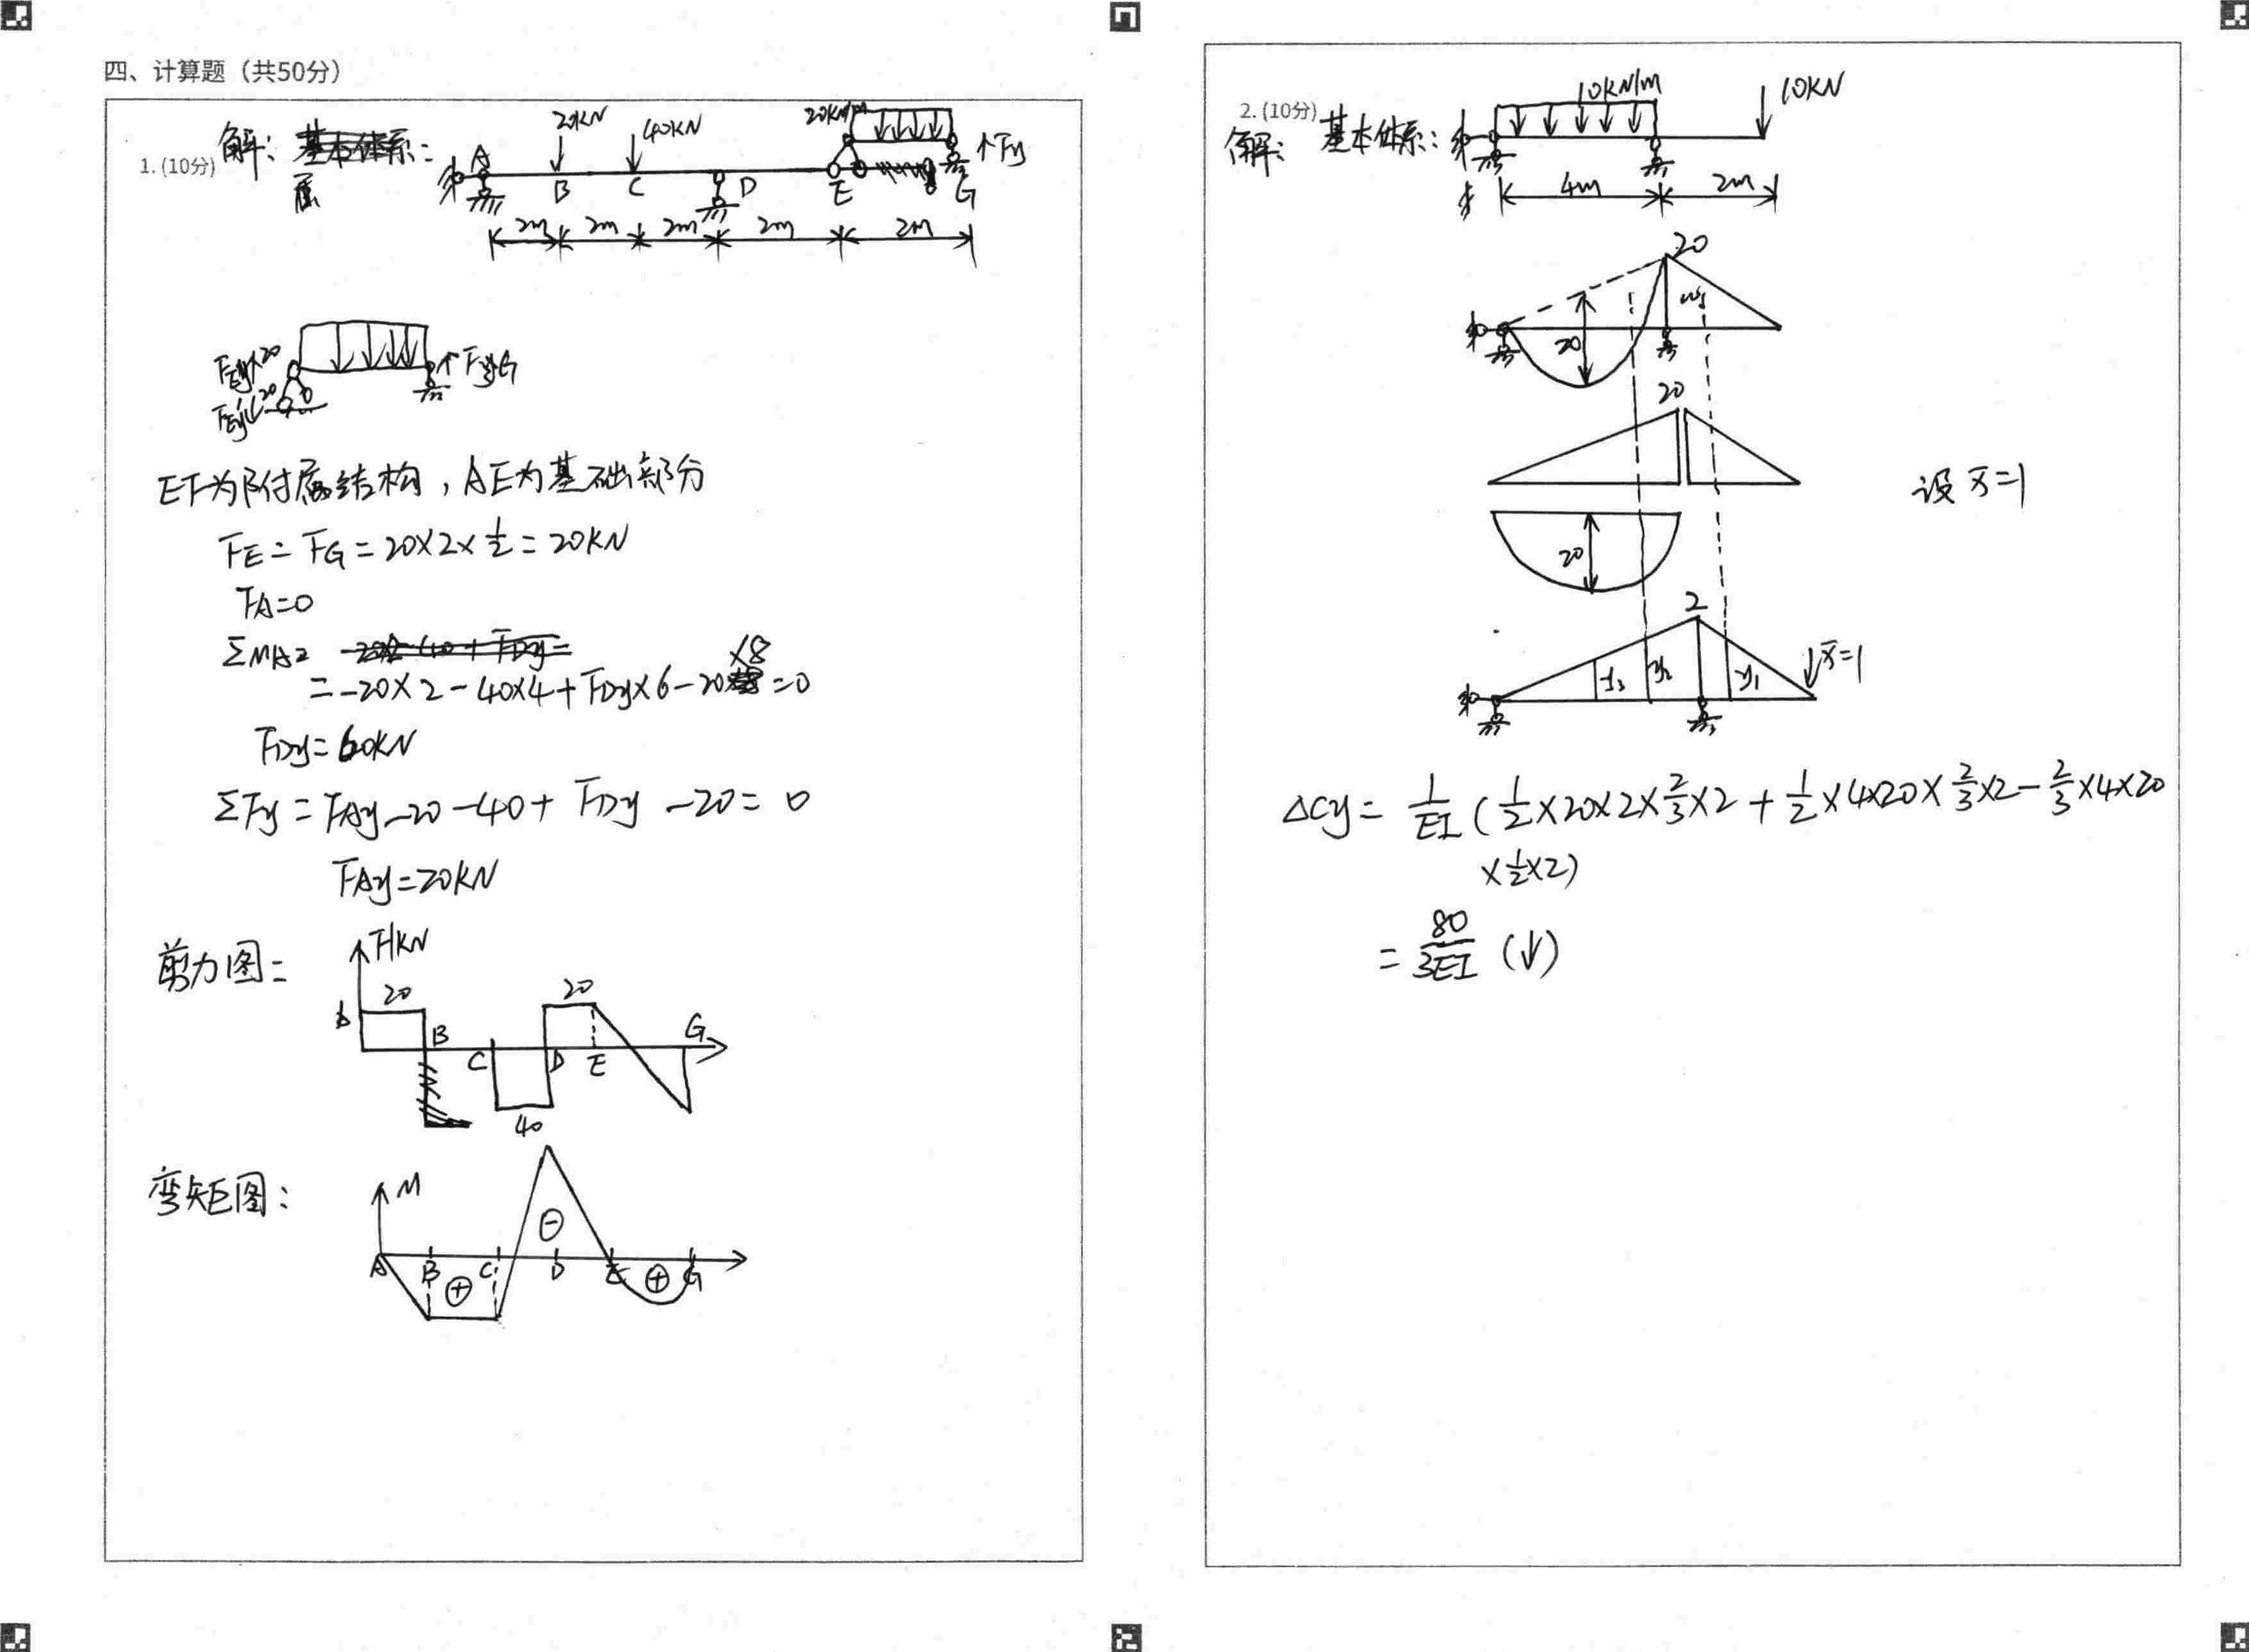 四、计算题（共50分）
1. (10分)
解：
属
20KN
40KN
20KN/m
↑Fy
A
B
C
D
E
G
2m
2m
2m
2m
2m
↑FyG
20
20
EF为附属结构，AE为基础部分
FE = FG = 20×2×1/2 = 20KN
FA=0
ΣMA=
= -20×2 - 40×4 + FDy×6 - 20×8 = 0
FDy = 60KN
ΣFy = FAy - 20 - 40 + FDy - 20 = 0
FAy = 20KN
剪力图：
F/KN
20
20
A
B
C
D
E
G
40
弯矩图：
M
⊖
A
B
C
D
E
G
⊕
⊕
2. (10分)
解：
基本体系：
10KN/m
10KN
4m
2m
20
20
20
设 x̄=1
20
2
y3
y2
y1
x̄=1
ΔCy = 1/EI (1/2×20×2×2/3×2 + 1/2×4×20×2/3×2 - 2/3×4×20
×1/2×2)
= 80/3EI (↓)